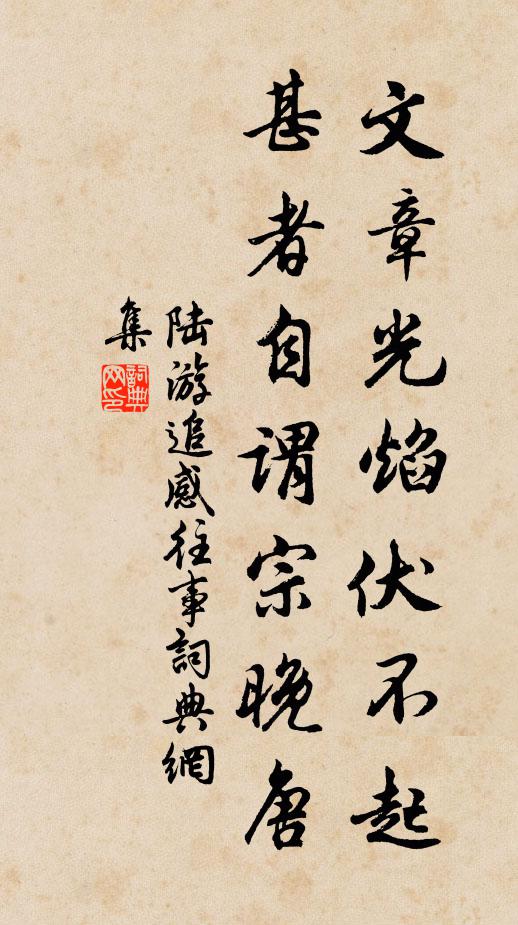 文章光焰伏不起
甚者自谓宗晚唐
陆游追感往事詞典網
集
詞典
网印